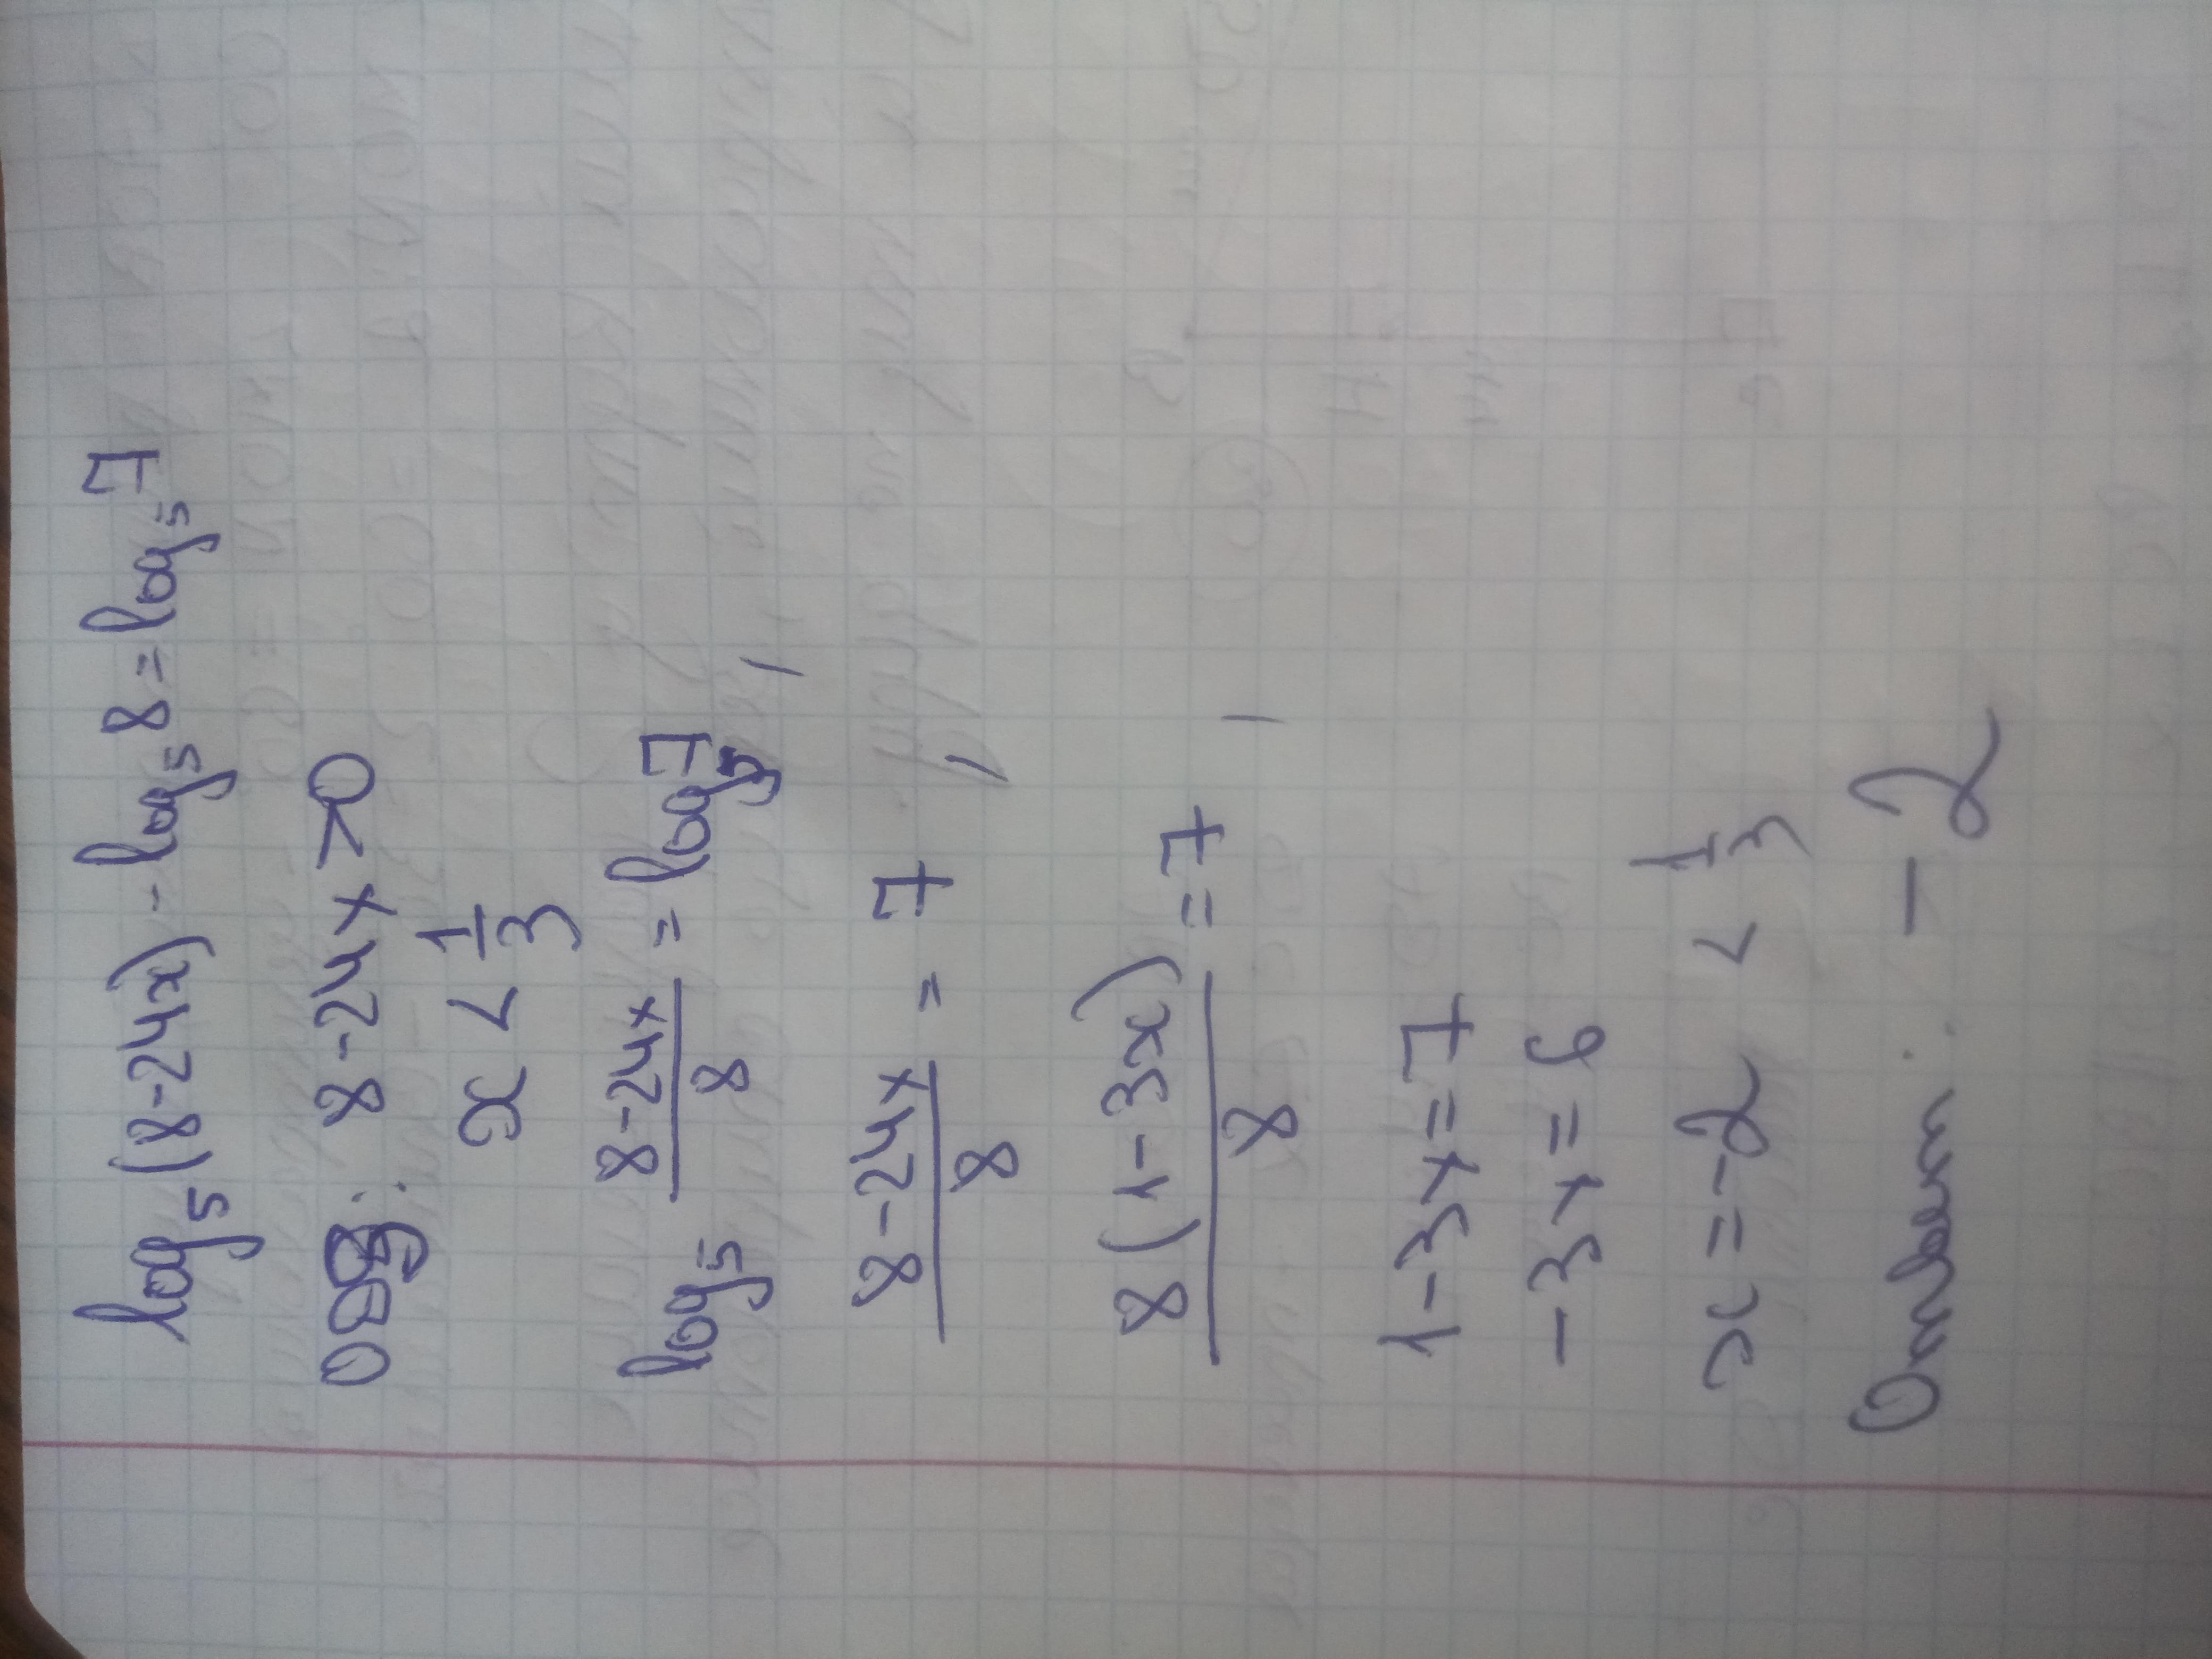 log₅(8-24x) - log₅8 = log₅7
ОДЗ: 8-24x>0
x < 1/3
log₅ (8-24x)/8 = log₅7
(8-24x)/8 = 7
8(1-3x)/8 = 7
1-3x=7
-3x=6
x=-2 < 1/3
Ответ: -2